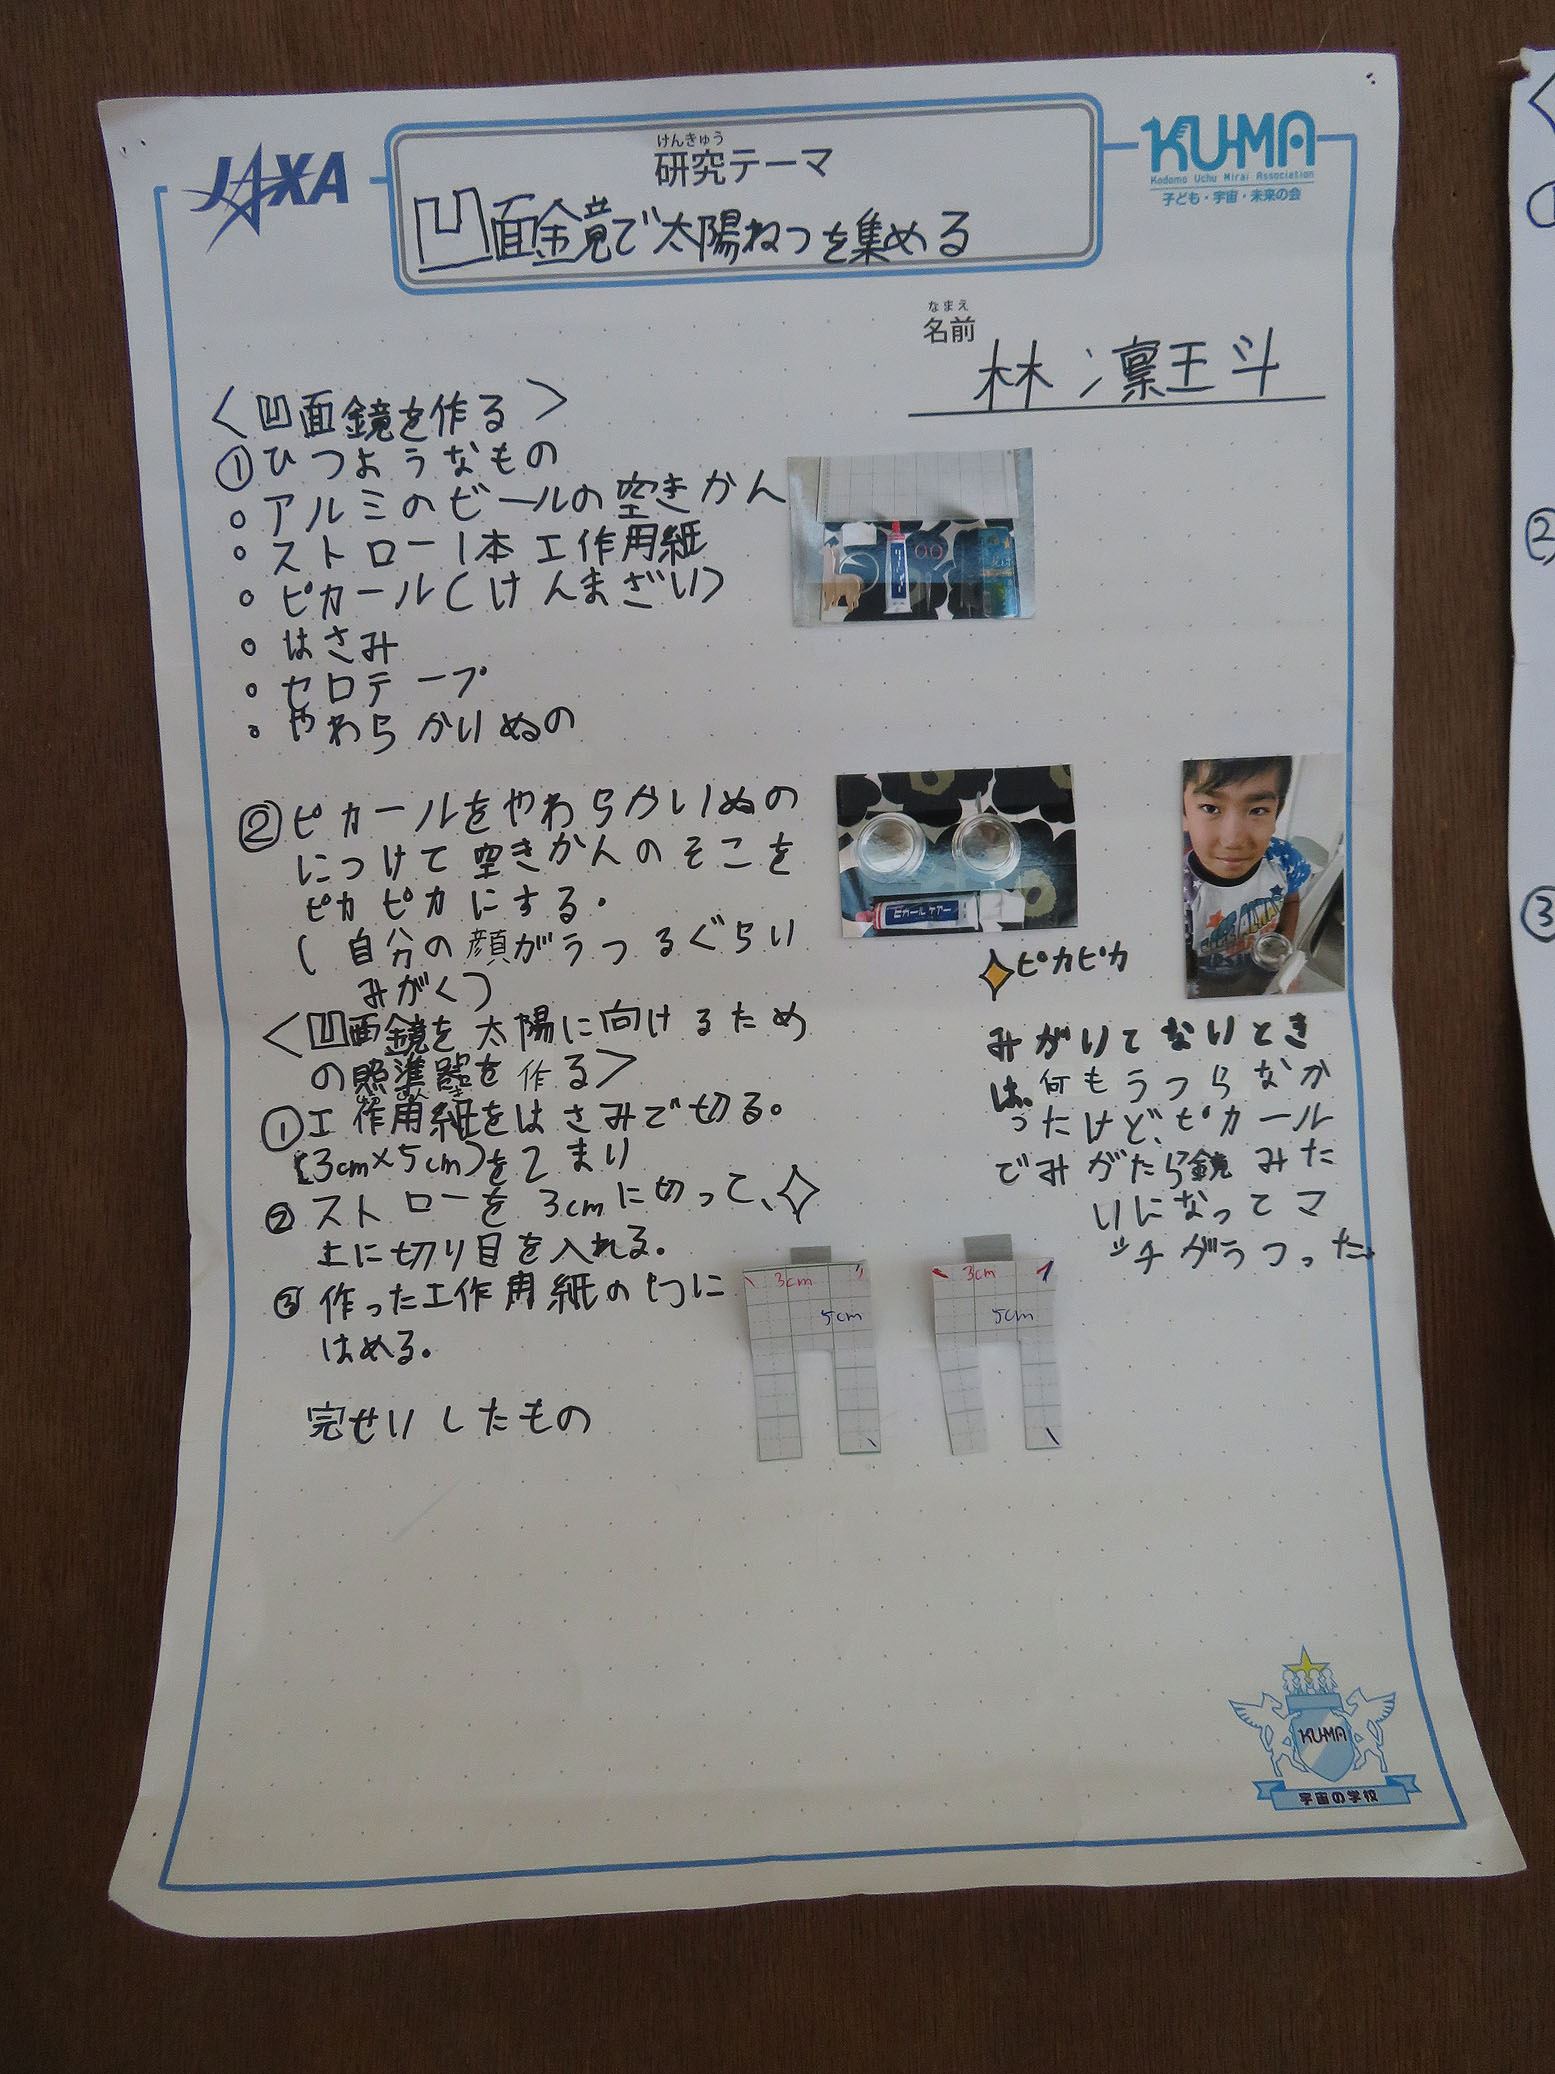 JAXA
けんきゅう
研究テーマ
凹面鏡で太陽ねつを集める
KU-MA
Kodomo Uchu Mirai Association
子ども・宇宙・未来の会
なまえ
名前
林 凛王斗
〈凹面鏡を作る〉
①ひつようなもの
○アルミのビールの空きかん
○ストロー1本 工作用紙
○ピカール(けんまざい)
○はさみ
○セロテープ
○やわらかいぬの
②ピカールをやわらかいぬの
につけて空きかんのそこを
ピカピカにする。
(自分の顔がうつるぐらい
みがく)
ピカール ケアー
ピカピカ
みがいてないとき
は、何もうつらなか
ったけど、ピカール
でみがたら鏡みた
いになってマ
ッチがうつった。
〈凹面鏡を太陽に向けるため
の照準器を作る〉
①工作用紙をはさみで切る。
(3cm×5cm)を2まい
②ストローを3cmに切って、
上に切り目を入れる。
③作った工作用紙の
はめる。
3cm
5cm
3cm
5cm
完せいしたもの
KU-MA
宇宙の学校
②
③